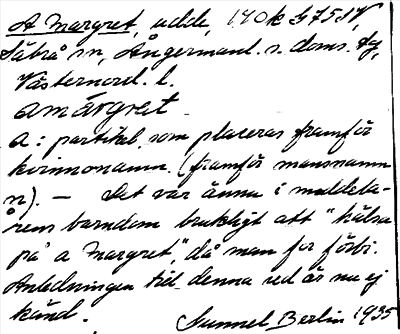 A Margret, udde, 140 k G 7515 V,
Säbrå sn, Ångermanl. s. doms. dg,
Västernorrl. l.
amárgret
a: partikel, som placeras framför
kvinnonamn. (framför mansnamn
n). — Det var ännu i meddela-
rens barndom brukligt att "hälsa
på a Margret", då man for förbi.
Anledningen till denna sed är nu ej
känd.
Gunnel Berlin 1935